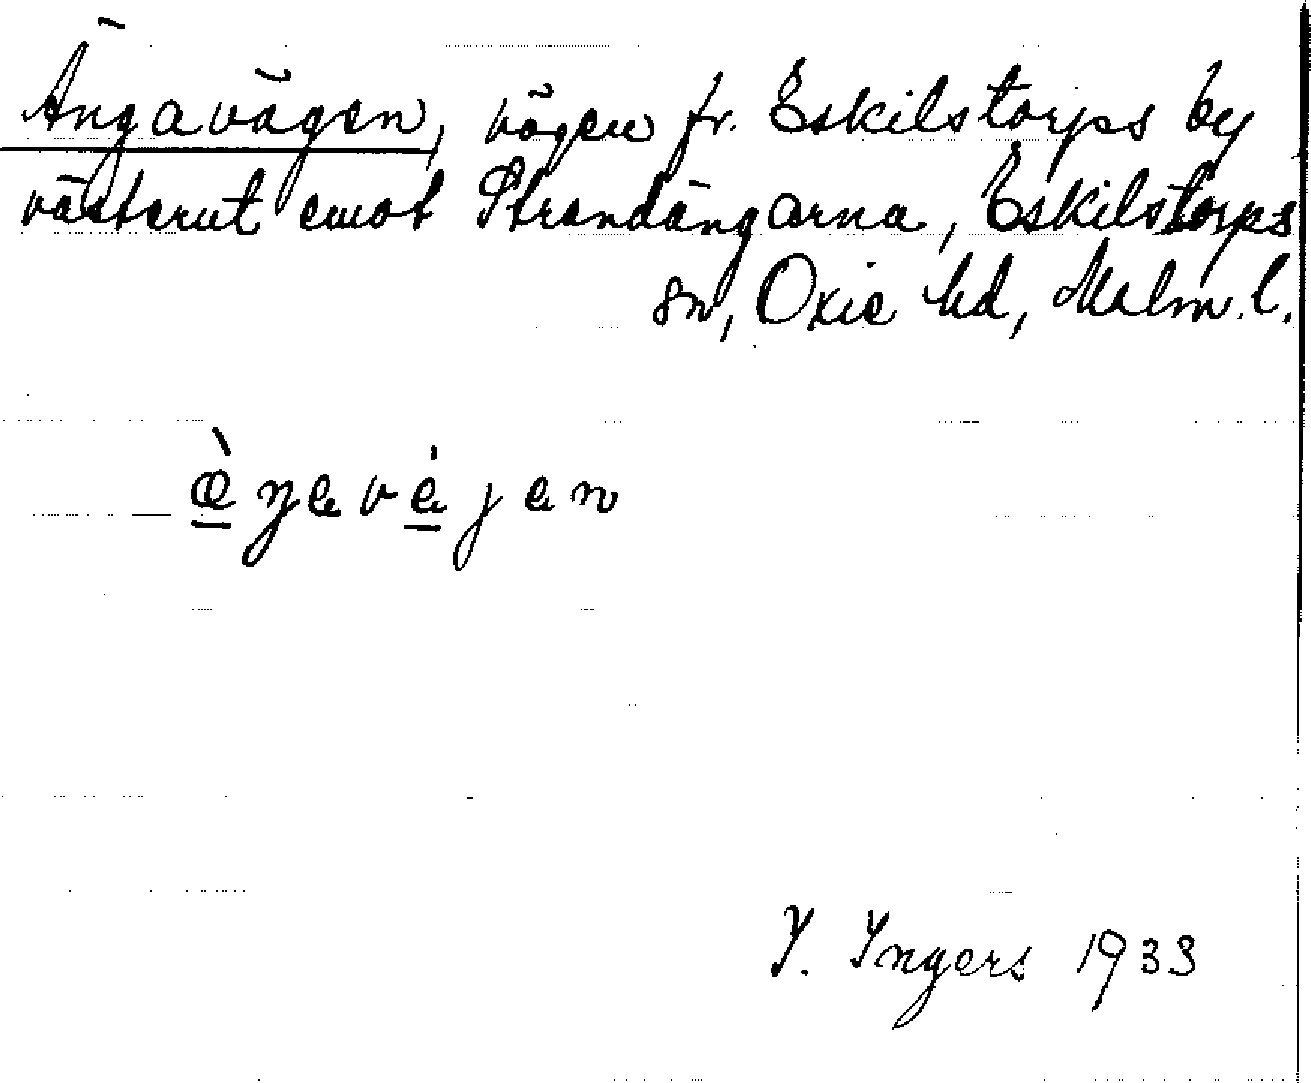 Ängavägen, vägen fr. Eskilstorps by
västerut emot Strandängarna, Eskilstorps
sn, Oxie hd, Malm. l.
æ̀ŋavéjen
I. Ingers 1933